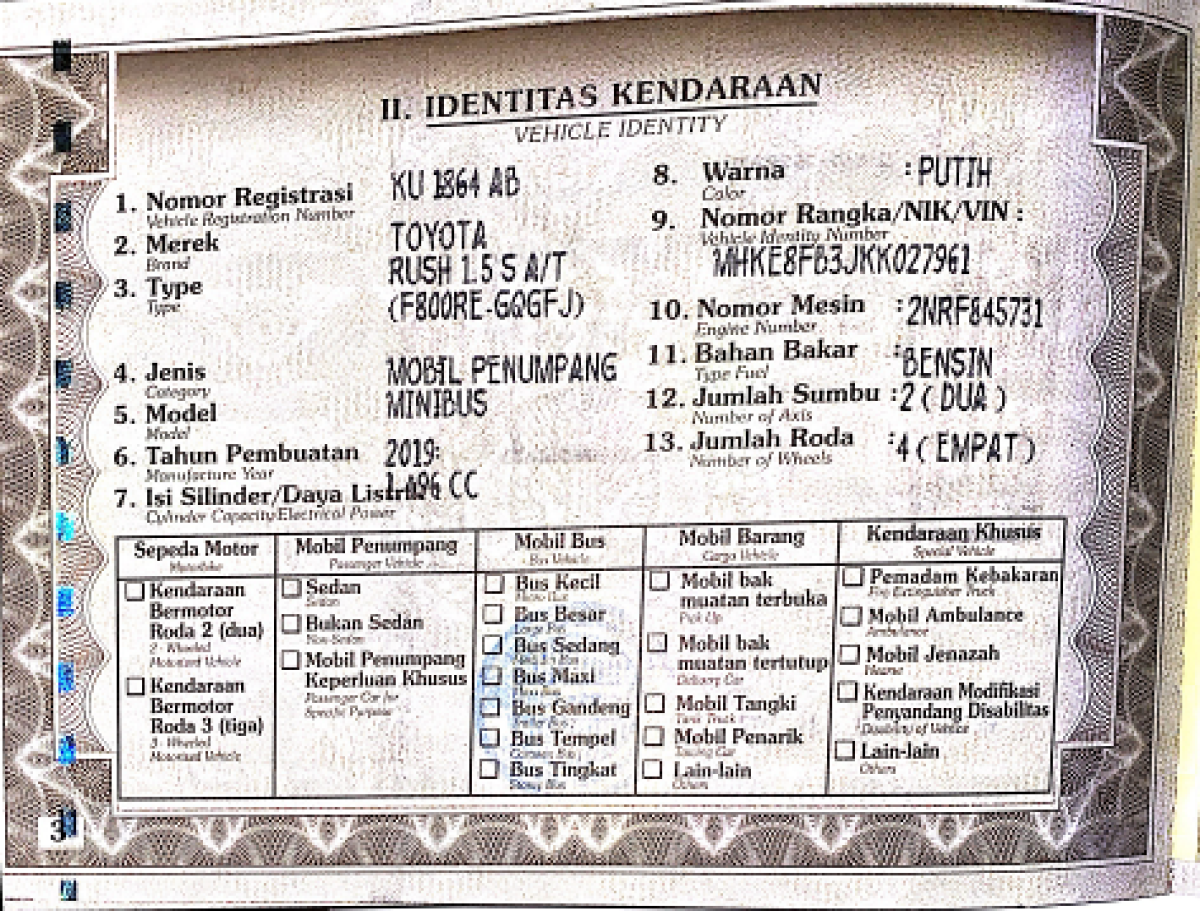 II. IDENTITAS KENDARAAN
VEHICLE IDENTITY
1. Nomor Registrasi KU 1864 AB
Vehicle Registration Number
2. Merek TOYOTA
Brand
3. Type RUSH 1.5 S A/T
Type (F800RE-GQGFJ)
4. Jenis MOBIL PENUMPANG
Category
5. Model MINIBUS
Model
6. Tahun Pembuatan 2019
Manufacture Year
7. Isi Silinder/Daya Listrik 1.496 CC
Cylinder Capacity/Electrical Power
8. Warna : PUTIH
Color
9. Nomor Rangka/NIK/VIN :
Vehicle Identity Number
MHKE8FB3JKK027961
10. Nomor Mesin : 2NRF845731
Engine Number
11. Bahan Bakar : BENSIN
Type Fuel
12. Jumlah Sumbu : 2 ( DUA )
Number of Axis
13. Jumlah Roda : 4 ( EMPAT )
Number of Wheels
Sepeda Motor
Motorbike
Kendaraan
Bermotor
Roda 2 (dua)
2 - Wheeled
Motorized Vehicle
Kendaraan
Bermotor
Roda 3 (tiga)
3 - Wheeled
Motorized Vehicle
Mobil Penumpang
Passenger Vehicle
Sedan
Sedan
Bukan Sedan
Non-Sedan
Mobil Penumpang
Keperluan Khusus
Passenger Car for
Specific Purpose
Mobil Bus
Bus Vehicle
Bus Kecil
Micro Bus
Bus Besar
Large Bus
Bus Sedang
Bus Maxi
Maxi Bus
Bus Gandeng
Bus Tempel
Bus Tingkat
Mobil Barang
Cargo Vehicle
Mobil bak
muatan terbuka
Pick Up
Mobil bak
muatan tertutup
Delivery Car
Mobil Tangki
Tank Truck
Mobil Penarik
Towing Car
Lain-lain
Others
Kendaraan Khusus
Special Vehicle
Pemadam Kebakaran
Fire Extinguisher Truck
Mobil Ambulance
Ambulance
Mobil Jenazah
Hearse
Kendaraan Modifikasi
Penyandang Disabilitas
Disability of Vehicle
Lain-lain
Others
3